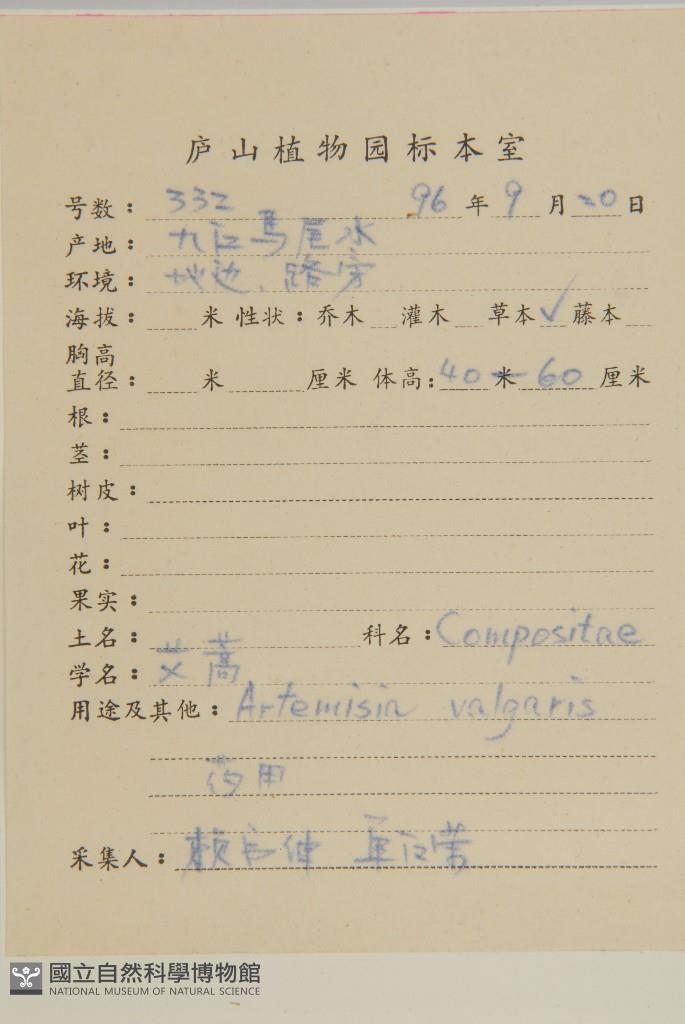 庐山植物园标本室
号数：332 96年9月20日
产地：九江马尾水
环境：地边、路旁
海拔： 米 性状：乔木 灌木 草本✓藤本
胸高
直径： 米 厘米 体高：40米60厘米
根：
茎：
树皮：
叶：
花：
果实：
土名： 科名：Compositae
学名：艾蒿
用途及其他：Artemisia valgaris
药用
采集人：赖
國立自然科學博物館
NATIONAL MUSEUM OF NATURAL SCIENCE